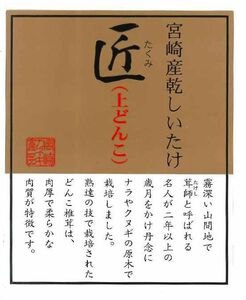 宮崎産乾しいたけ
たくみ
匠
(上どんこ)
霧深い山間地で
たけし
茸師と呼ばれる
名人が二年以上の
歳月をかけ丹念に
ナラやクヌギの原木で
栽培しました。
熟達の技で栽培された
どんこ椎茸は、
肉厚で柔らかな
肉質が特徴です。